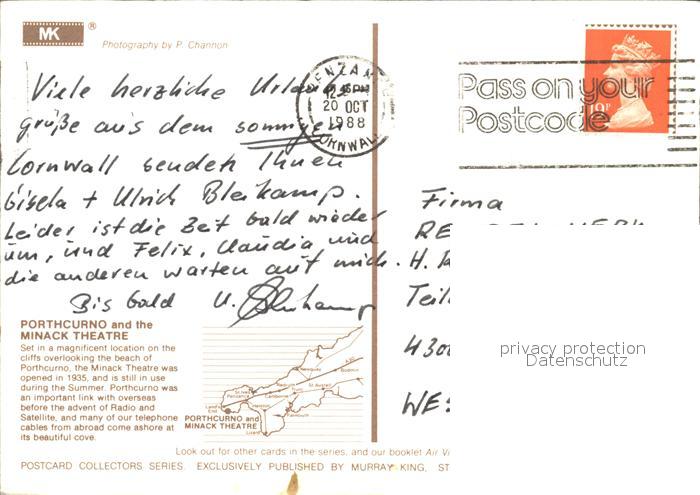 MK ®
Photography by P. Channon
Viele herzliche Urlaubs
grüße aus dem sonnigen
Cornwall senden Ihnen
Gisela + Ulrich Bleikamp.
Leider ist die Zeit bald wieder
um, und Felix, Claudia und
die anderen warten auf mich.
Bis bald U.
PENZANCE
20 OCT
1988
CORNWALL
Pass on your
Postcode
19P
Firma
H.
430
WES
privacy protection
Datenschutz
PORTHCURNO and the
MINACK THEATRE
Set in a magnificent location on the
cliffs overlooking the beach of
Porthcurno, the Minack Theatre was
opened in 1935, and is still in use
during the Summer. Porthcurno was
an important link with overseas
before the advent of Radio and
Satellite, and many of our telephone
cables from abroad come ashore at
its beautiful cove.
Newquay
Bodmin
St. Ives
Redruth
St. Austell
Truro
Penzance
Camborne
Land's End
Helston
Falmouth
Lizard
PORTHCURNO and
MINACK THEATRE
Look out for other cards in the series, and our booklet Air Vi
POSTCARD COLLECTORS SERIES. EXCLUSIVELY PUBLISHED BY MURRAY KING, ST